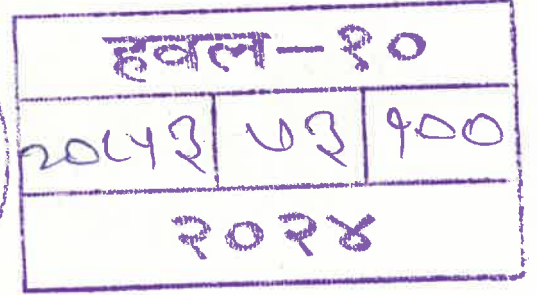 हवल-१०
२०८५३ ७३ १००
२०२४